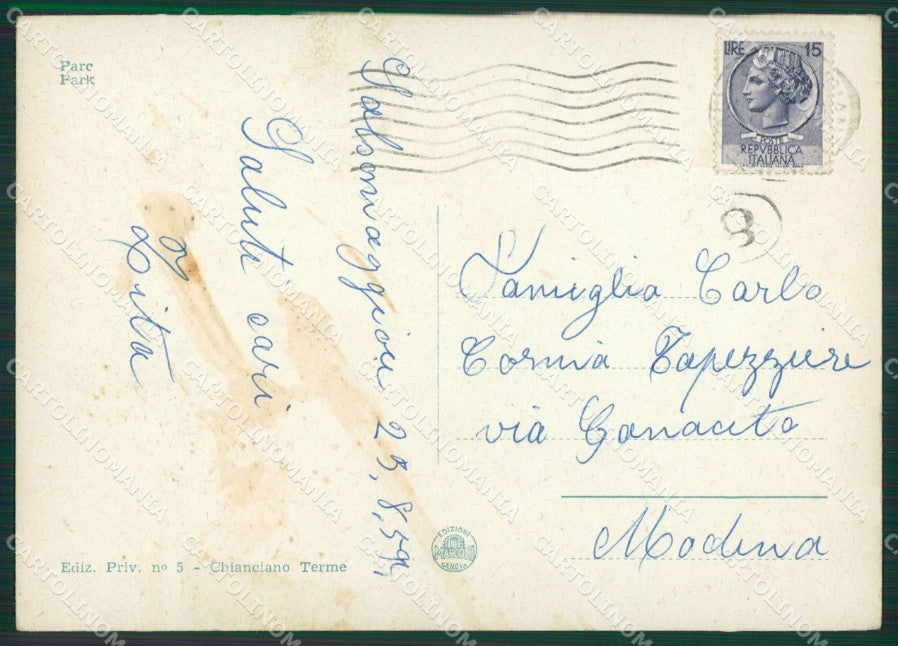 Parc
Park
Salsomaggiore 25,8,59,
Saluti cari
Zita
LIRE 15
POSTE
REPVBBLICA
ITALIANA
3
Famiglia Carlo
Cornia Tapezziere
via Ganaceto
Modena
Ediz. Priv. nº 5 - Chianciano Terme
EDIZIONI
GENOVA
CARTOLINOMANIA